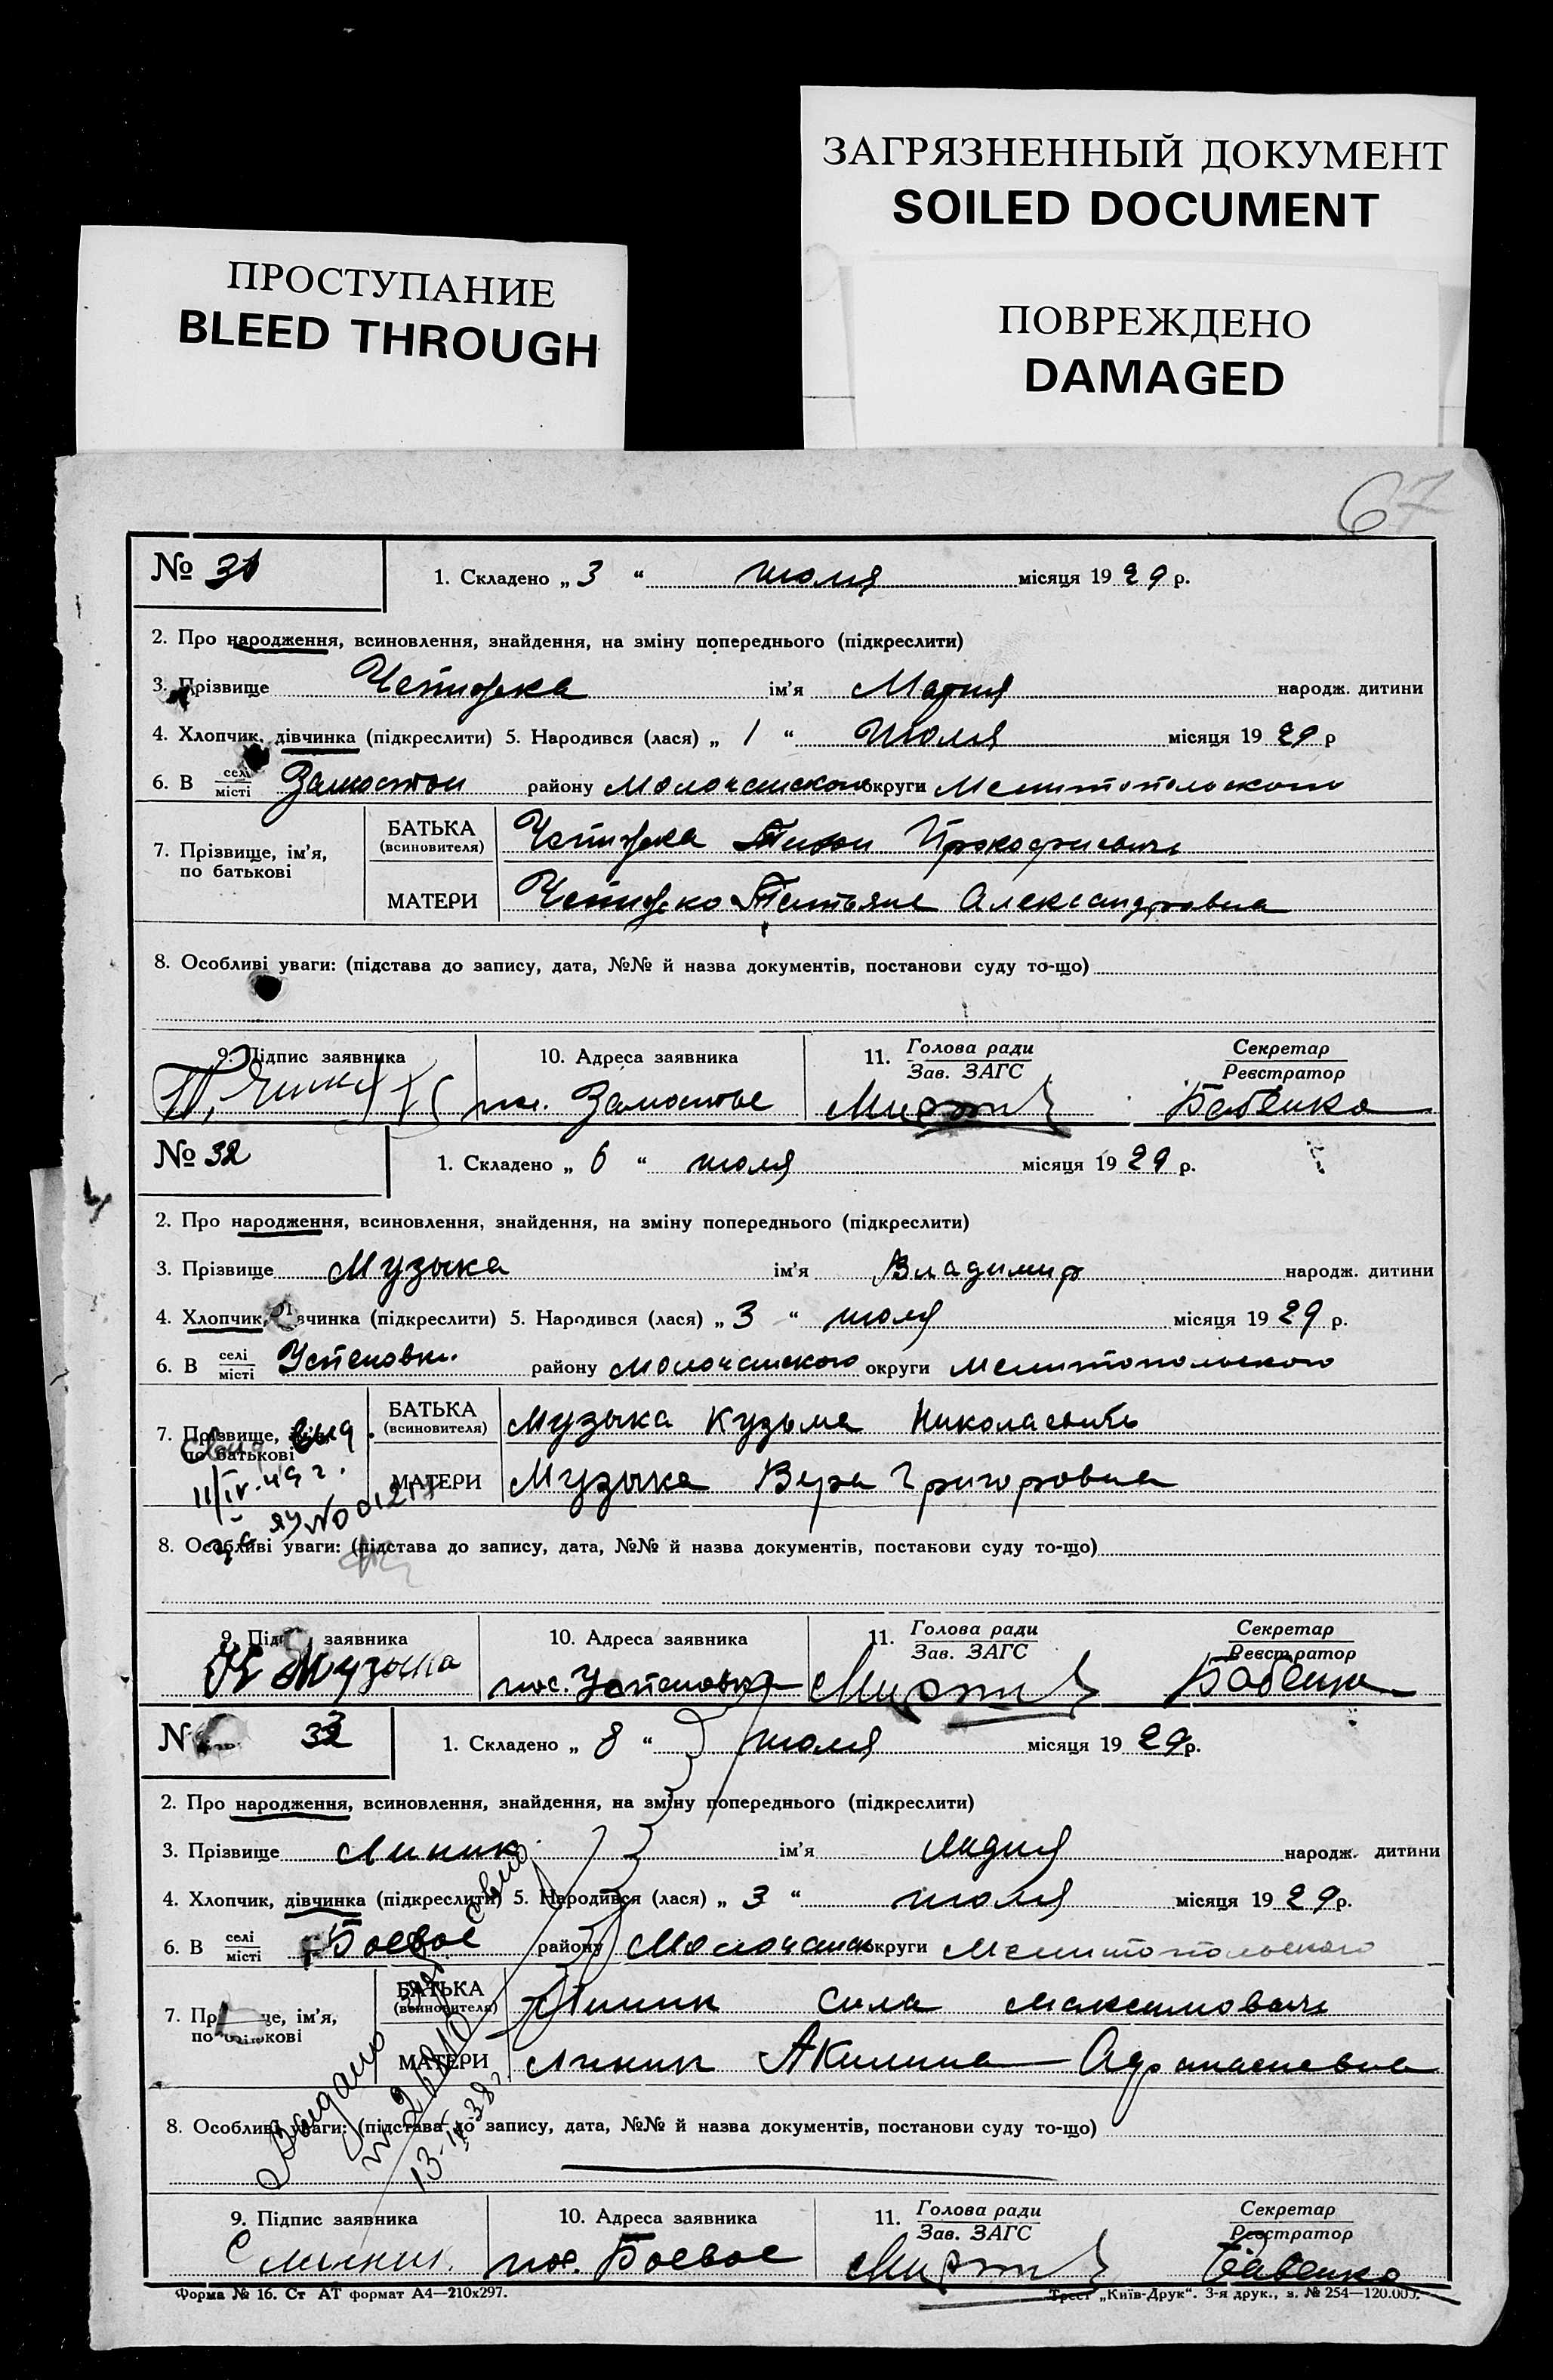 ЗАГРЯЗНЕННЫЙ ДОКУМЕНТ
SOILED DOCUMENT
ПРОСТУПАНИЕ
BLEED THROUGH
ПОВРЕЖДЕНО
DAMAGED
67
№ 31
1. Складено „ 3 “ июля місяця 1929 р.
2. Про народження, всиновлення, знайдення, на зміну попереднього (підкреслити)
3. Прізвище ім'я Мария народж. дитини
4. Хлопчик, дівчинка (підкреслити) 5. Народився (лася) „ 1 “ Июля місяця 1929 р
6. В селі місті Замостьи району Молочанского округи Мелитопольского
7. Прізвище, ім'я, по батькові
БАТЬКА (всиновителя) Прокофиевич
МАТЕРИ Татьяна Александровна
8. Особливі уваги: (підстава до запису, дата, №№ й назва документів, постанови суду то-що)
9. Підпис заявника 10. Адреса заявника 11. Голова ради Зав. ЗАГС Секретар Реєстратор
Замостье Бабенко
№ 32
1. Складено „ 6 “ июля місяця 1929 р.
2. Про народження, всиновлення, знайдення, на зміну попереднього (підкреслити)
3. Прізвище Музыка ім'я Владимир народж. дитини
4. Хлопчик, дівчинка (підкреслити) 5. Народився (лася) „ 3 “ июля місяця 1929 р.
6. В селі місті Успеновки району Молочанского округи Мелитопольского
7. Прізвище, ім'я, по батькові
БАТЬКА (всиновителя) Музыка Кузьма Николаевичь
МАТЕРИ Музыка Вера Григоровна
11/IV-49 г.
8. Особливі уваги: (підстава до запису, дата, №№ й назва документів, постанови суду то-що)
9. Підпис заявника 10. Адреса заявника 11. Голова ради Зав. ЗАГС Секретар Реєстратор
К Музыка пос. Успеновка Бабенко
№ 33
1. Складено „ 8 “ июля місяця 1929 р.
2. Про народження, всиновлення, знайдення, на зміну попереднього (підкреслити)
3. Прізвище Линик ім'я Лидия народж. дитини
4. Хлопчик, дівчинка (підкреслити) 5. Народився (лася) „ 3 “ июля місяця 1929 р.
6. В селі місті Боевое району Молочанск округи Мелитопольского
7. Прізвище, ім'я, по батькові
БАТЬКА (всиновителя) Линик Сила Максимович
МАТЕРИ Линик Акилина Афанасиевна
13-IV-38 г.
8. Особливі уваги: (підстава до запису, дата, №№ й назва документів, постанови суду то-що)
9. Підпис заявника 10. Адреса заявника 11. Голова ради Зав. ЗАГС Секретар Реєстратор
С Линик. пос. Боевое Бабенко
Форма № 16. Ст АТ формат А4—210х297. Трест „Київ-Друк“. 3-я друк., з. № 254—120.000.